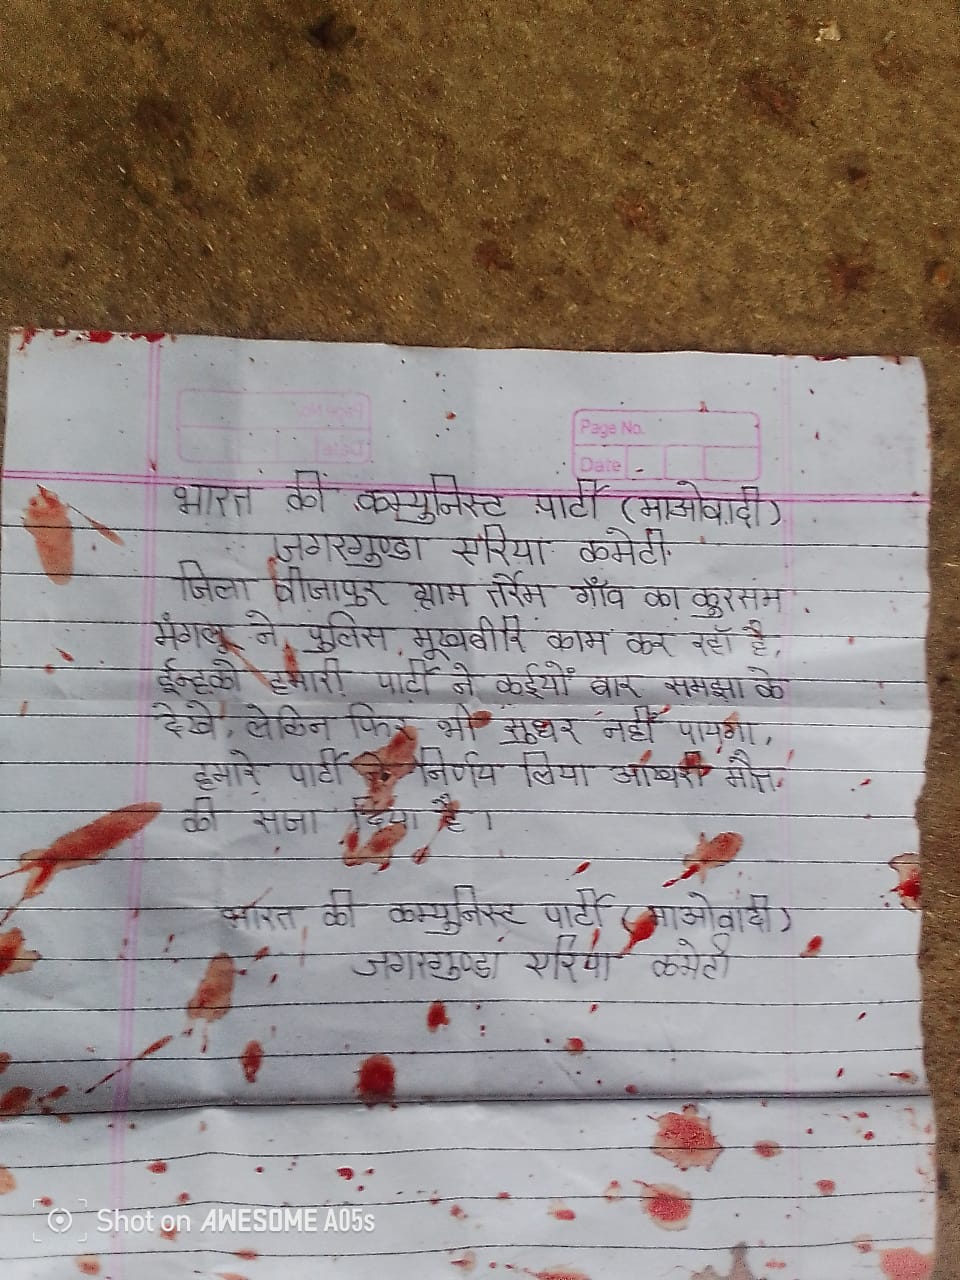 Page No.
Date
भारत की कम्युनिस्ट पार्टी (माओवादी)
जगरगुण्डा एरिया कमेटी
जिला बीजापुर ग्राम तर्रेम गाँव का कुरसम
मंगलू ने पुलिस मुखबीरि काम कर रहाँ है,
ईन्हको हमारी पार्टी ने कईयों बार समझा के
देखे, लेकिन फिर भी सुधर नहीं पायगा,
हमारे पार्टी ने निर्णय लिया आखरी मौत
की सजा दिया है।
भारत की कम्युनिस्ट पार्टी (माओवादी)
जगरगुण्डा एरिया कमेटी
Shot on AWESOME A05s